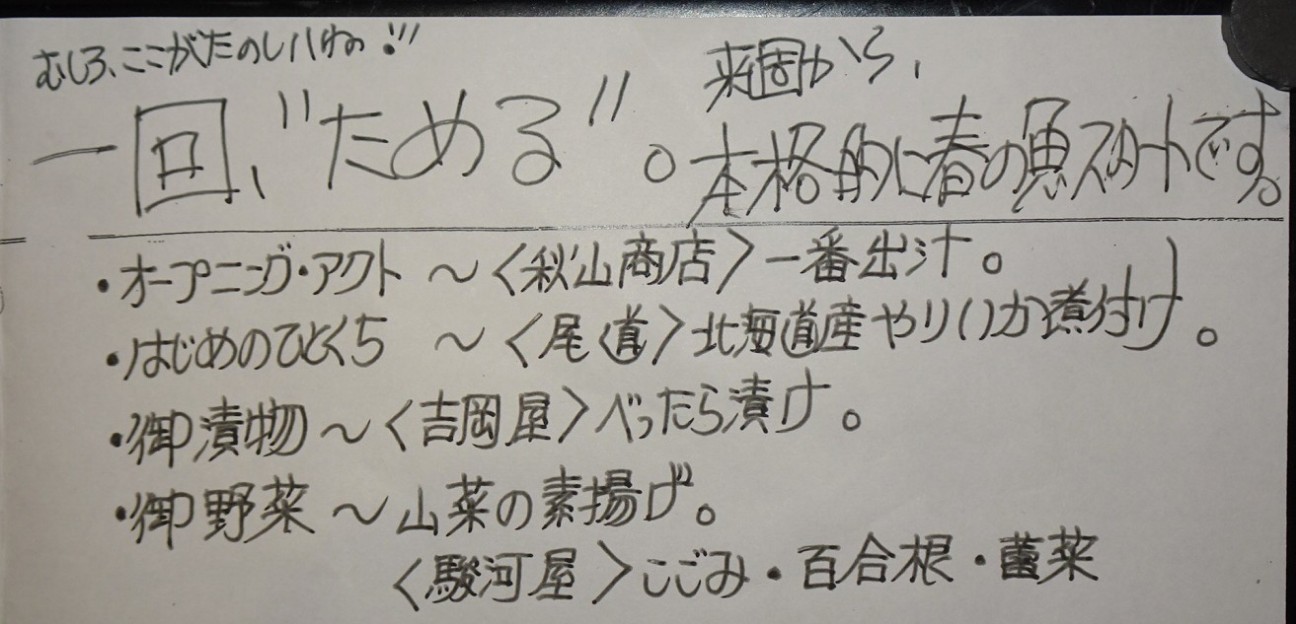 むしろ、ここがたのしいねの!!!
一回、"ためる"。
来週から、
本格的に春の魚スタートです。
・オープニング・アクト 〜〈秋山商店〉一番出汁。
・はじめのひとくち 〜〈尾道〉北海道産やりいか煮付け。
・御漬物〜〈吉岡屋〉べったら漬け。
・御野菜〜山菜の素揚げ。
〈駿河屋〉こごみ・百合根・蕗薹